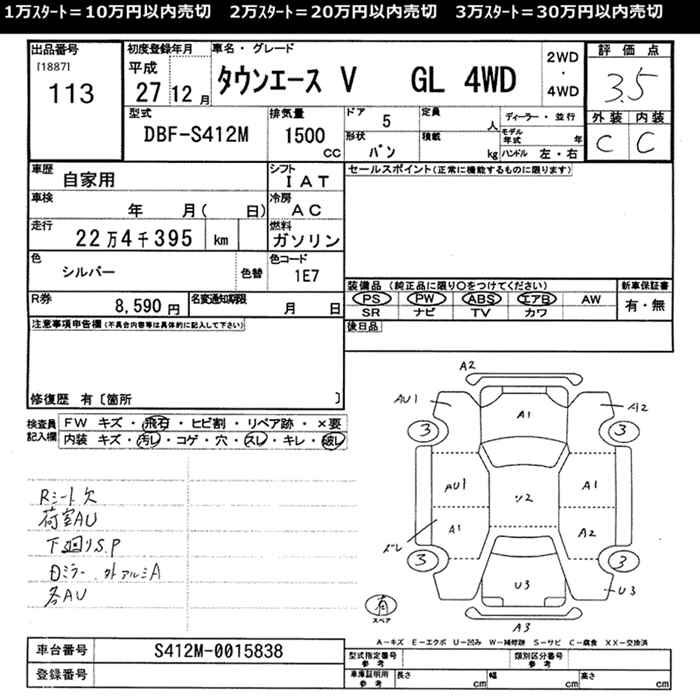 1万ｽﾀｰﾄ＝10万円以内売切　2万ｽﾀｰﾄ＝20万円以内売切　3万ｽﾀｰﾄ＝30万円以内売切
出品番号
[1887]
113
初度登録年月
平成
27 12 月
車名・グレード
タウンエース V GL 4WD
2WD
・
4WD
評価点
3.5
外装 内装
C C
型式
DBF-S412M
排気量
1500
CC
ドア 5
定員 人
形状 バン
積載 kg
ディーラー・並行
モデル年式 年
ハンドル 左・右
車歴
自家用
シフト
IAT
セールスポイント(正常に機能するものに限ります)
車検
年 月( 日)
冷房
AC
走行
22万4千395 km
燃料
ガソリン
色
シルバー
色替
色コード
1E7
装備品 (純正品に限り〇をつけてください)
PS PW ABS エアB AW
SR ナビ TV カワ
新車保証書
有・無
R券
8,590 円
名変通知期限
月 日
後日品
注意事項申告欄(不具合内容等は具体的に記入して下さい)
修復歴 有〔箇所 〕
検査員
記入欄
FW キズ・飛石・ヒビ割・リペア跡・×要
内装 キズ・汚レ・コゲ・穴・スレ・キレ・破レ
Rシート欠
荷室AU
下回りS.P
Dミラー.外アルミA
各AU
A2
AU1
A1
A2
3
3
AU1
A1
ソ2
A1
A2
ズレ
3
3
U3
U3
A3
有
スペア
A－キズ E－エクボ U－凹み W－補修跡 S－サビ C－腐食 XX－交換済
車台番号
S412M-0015838
登録番号
型式指定番号
参考
類別区分番号
参考
車庫証明用
参考
長さ cm
幅 cm
高さ cm